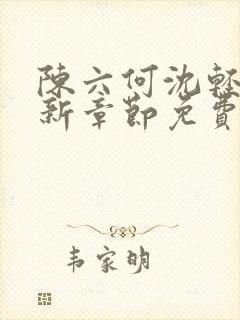 陳六何沈輕
新章節免費
韦家明